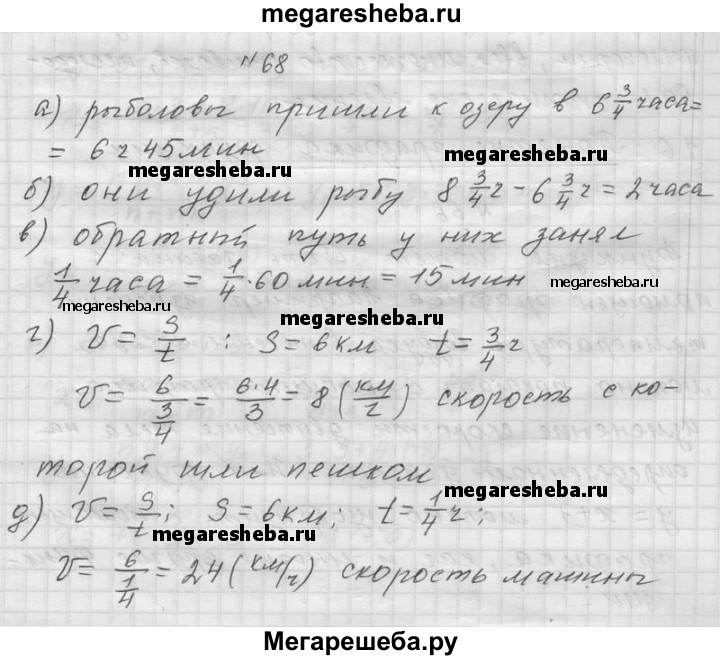 megaresheba.ru
№68
а) рыболовы пришли к озеру в 6 3/4 часа=
= 6 ч 45 мин
megaresheba.ru
б) они удили рыбу 8 3/4 ч - 6 3/4 ч = 2 часа
megaresheba.ru
в) обратный путь у них занял
1/4 часа = 1/4 · 60 мин = 15 мин
megaresheba.ru
megaresheba.ru
г) V = S/t ; S = 6 км t = 3/4 ч
V = 6/(3/4) = (6·4)/3 = 8 (км/ч) скорость с ко-
megaresheba.ru
торой шли пешком
megaresheba.ru
д) V = S/t; S = 6 км; t = 1/4 ч;
megaresheba.ru
V = 6/(1/4) = 24 (км/ч) скорость машины
megaresheba.ru
Мегарешеба.ру